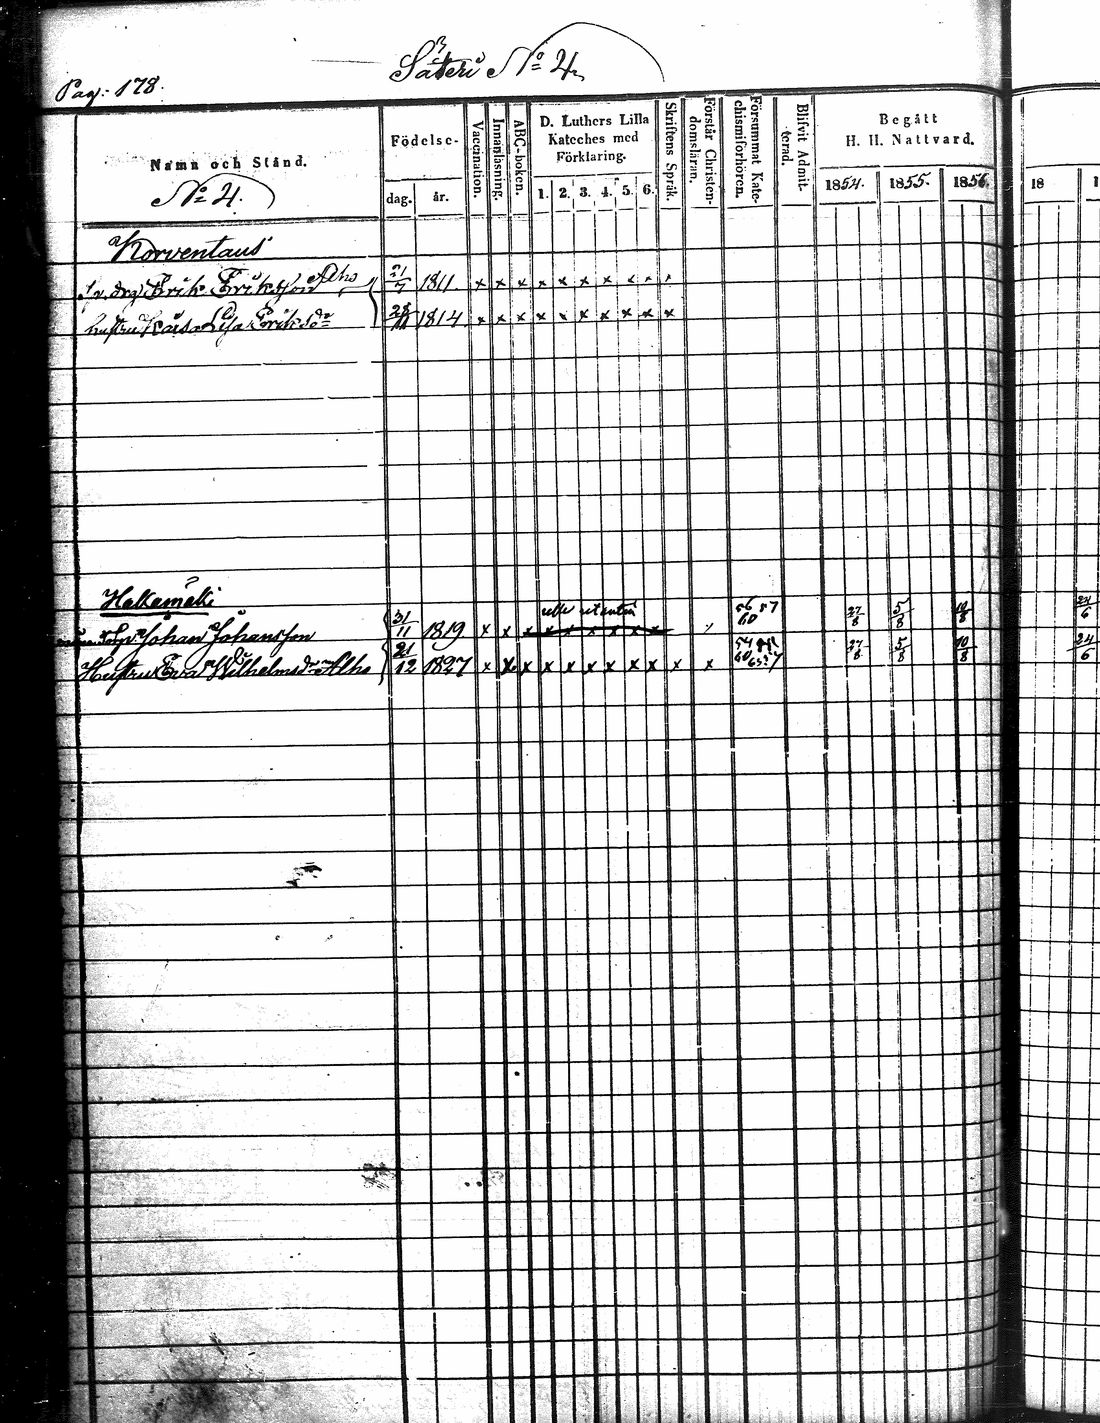 Pag: 178.
Säteri No 4
Namn och Stånd.
No 4.
Födelse-
dag. år.
Vaccination.
Innanläsning.
ABC-boken.
D. Luthers Lilla
Kateches med
Förklaring.
1. 2. 3. 4. 5. 6.
Skriftens Språk.
Förstår Christen-
domsläran.
Försummat Kate-
chismiförhören.
Blifvit Admit-
terad.
Begått
H. H. Nattvard.
1854. 1855. 1856.
18
Korventaus
Erik Eriksson Alho 1811 x x x x x x x
hustru Kaisa Lisa Eriksdr 1814 x x x x x x x x x x
Hakamäki
Johan Johansson 31/11 1819 x x x x x x x x x 56 57 60 27/8 5/8 10/8 24/6
Hustru Eva Wilhelmsdr Alho 21/12 1827 x x x x x x x x x x x 27/8 5/8 10/8 24/6